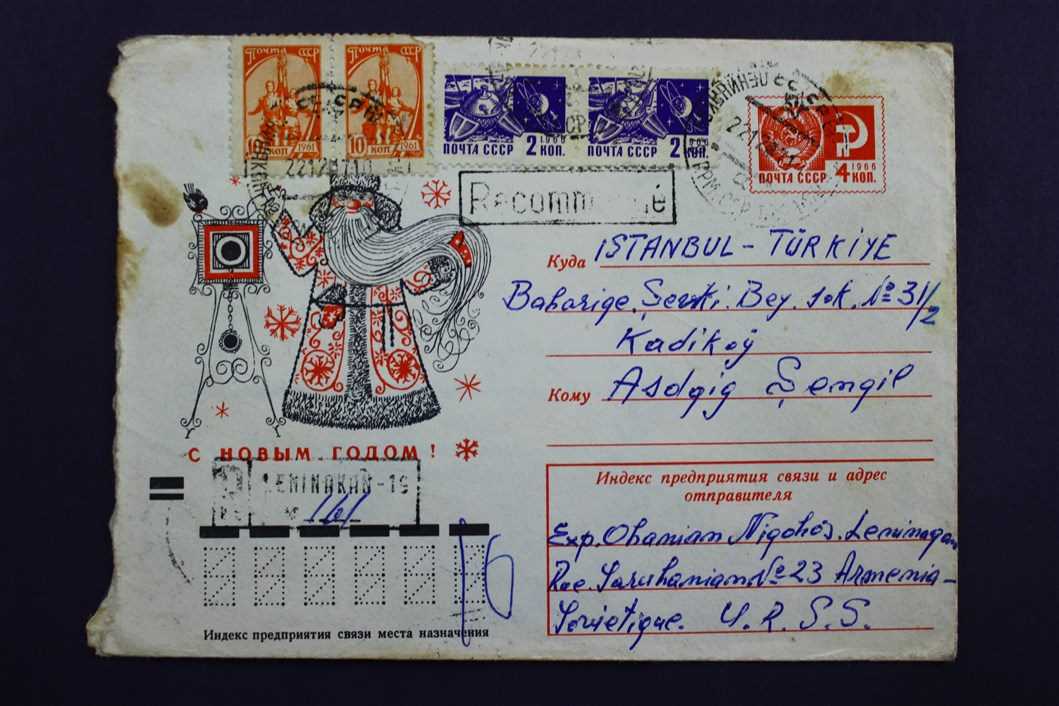 ПОЧТА СССР
ПОЧТА СССР
10 КОП 1961
10 КОП 1961
1966
ПОЧТА СССР 2 КОП.
1966
ПОЧТА СССР 2 КОП.
1966
ПОЧТА СССР 4 КОП.
Recomm é
Куда ISTANBUL - TÜRKİYE
Baharige. Şevki. Bey. sok. No 31/2
Kadiköy
Кому Asdgig Şengil
С НОВЫМ ГОДОМ!
LENINAKAN-19
161
Индекс предприятия связи и адрес
отправителя
Exp. Ohanian Nigohos. Leninagan
Rue. Saruhanian No 23 Armenia-
Sovietique. U.R.S.S.
16
Индекс предприятия связи места назначения